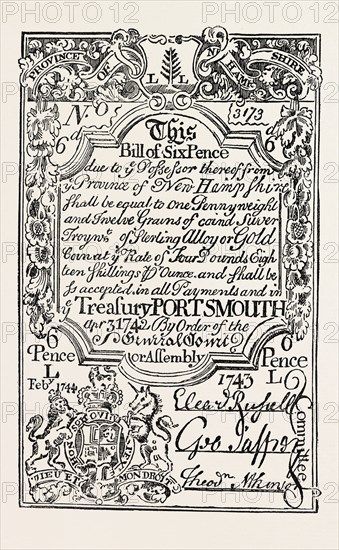 PROVINCE OF NEW HAMP SHIRE
L L
No
3173
6d
6
This
Bill of Six Pence
due to ye Possessor thereof from
ye Province of New Hampshire
shall be equal to one Pennyweight
and Twelve Grains of coind Silver
Troywt. of Sterling Alloy or Gold
Coin at ye Rate of Four Pounds Eigh
teen Shillings ⅌ Ounce. and shall be
so accepted in all Payments and in
ye Treasury PORTSMOUTH
Apr 3 1742 By Order of the
General Court
or Assembly
6
Pence
L
6
Pence
L
Feby 1744
1743
HONI SOIT QUI MAL Y
DIEU ET MON DROIT
Geo Jaffrey
Theodr. Atkinson
Committee
PHOTO12